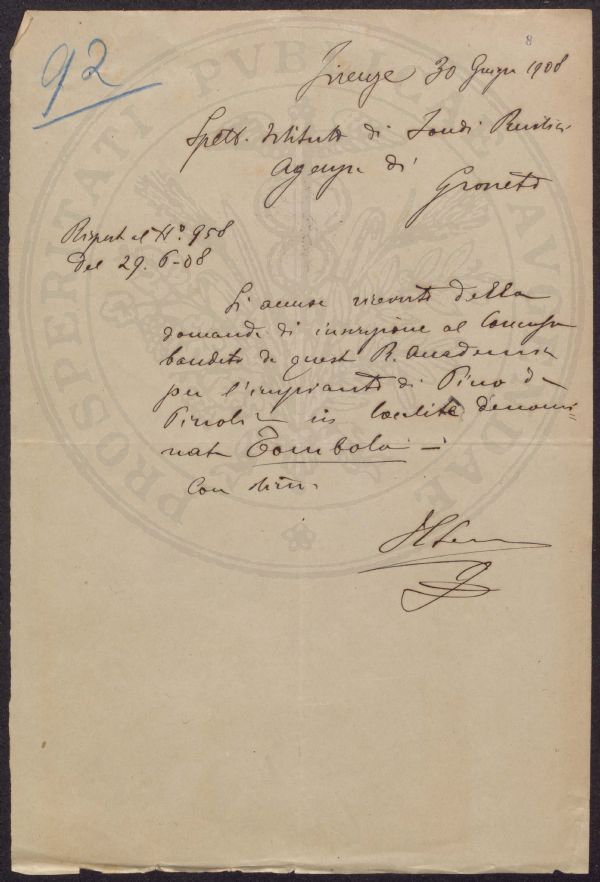 92
8
Firenze 30 Giugno 1908
Spett. Istituto di Fondi Rustici
Agenzia di
Grosseto
Risposta al N.º 958
del 29.6-08
Si accusa ricevuta della
domanda di iscrizione al Concorso
bandito da quest R. Accademia
per l'impianto di Pino da
Pinoli in località denomi=
nata Tombolo —
Con stima
Il Seg
PROSPERITATI PUBLICAE AUGENDAE